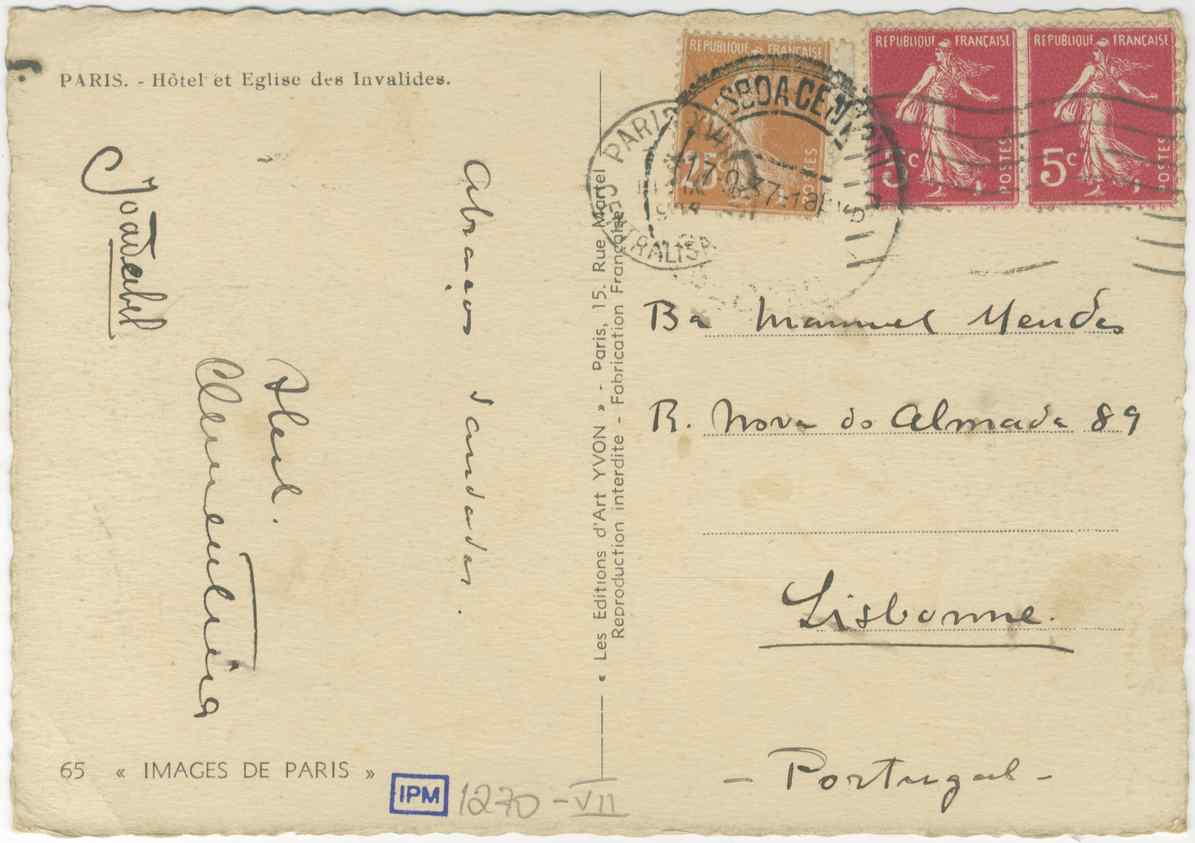 PARIS. - Hôtel et Eglise des Invalides.
Abraços saudades.
Abel.
Clementina
65 « IMAGES DE PARIS »
IPM 1270-VII
« Les Editions d'Art YVON » - Paris, 15. Rue Martel
Reproduction interdite - Fabrication Française
REPUBLIQUE FRANÇAISE
25c
POSTES
REPUBLIQUE FRANÇAISE
5c
POSTES
REPUBLIQUE FRANÇAISE
5c
POSTES
PARIS XVII
LISBOA CENTRAL
Manuel Mendes
R. Nova do Almada 89
Lisbonne.
- Portugal -